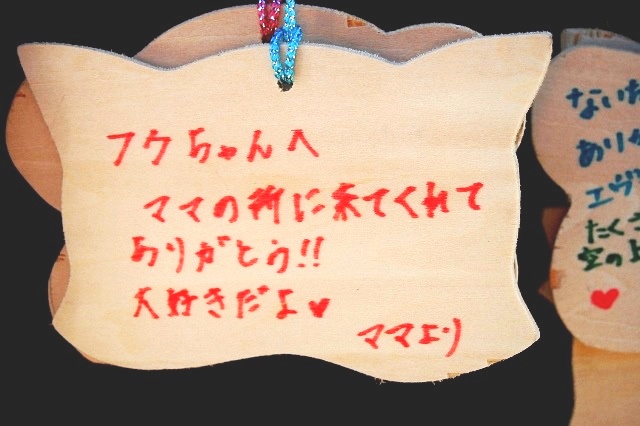 フクちゃんへ
ママの所に来てくれて
ありがとう!!
大好きだよ♥
ママより
ないわ
ありが
エヴ
たくさ
空の上
♥